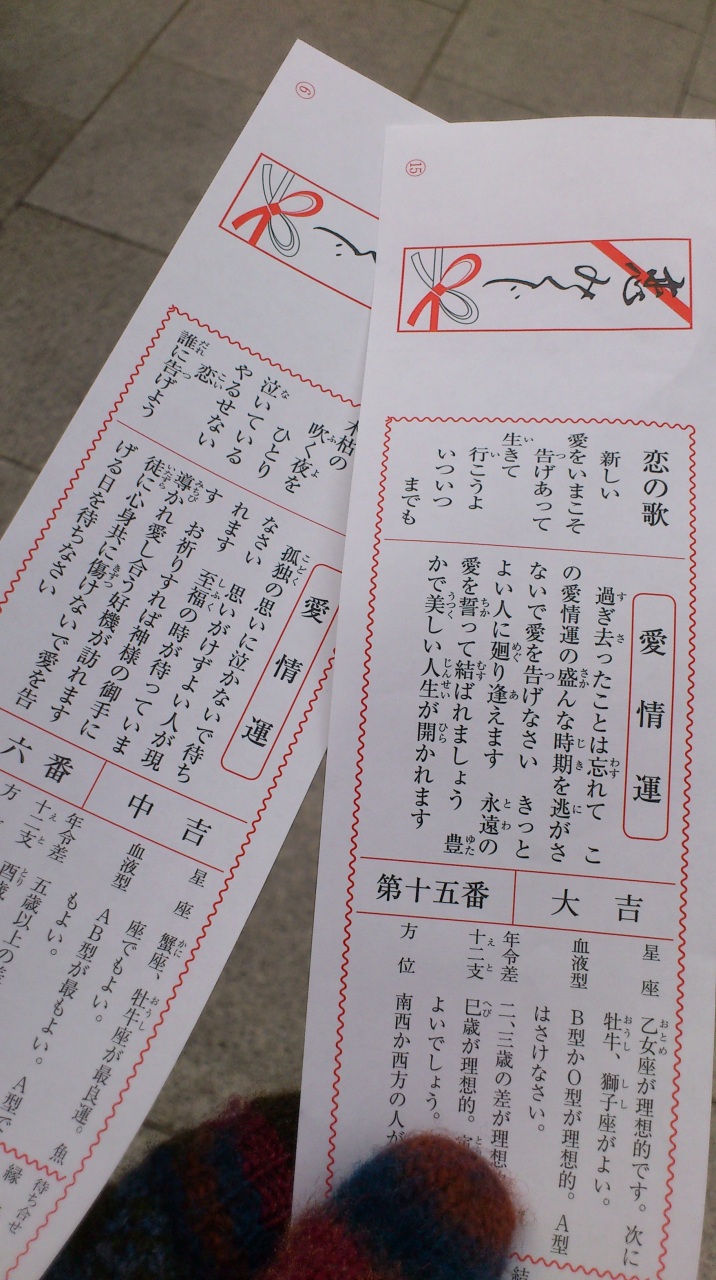 15
恋みくじ
恋の歌
新しい
愛をいまこそ
告げあって
生きて
行こうよ
いついつ
までも
愛情運
過ぎ去ったことは忘れて　こ
の愛情運の盛んな時期を逃がさ
ないで愛を告げなさい　きっと
よい人に廻り逢えます　永遠の
愛を誓って結ばれましょう　豊
かで美しい人生が開かれます
大吉
第十五番
星座　乙女座が理想的です。次に
牡牛、獅子座がよい。
血液型　B型かO型が理想的。A型
はさけなさい。
年令差　二、三歳の差が理想
十二支　巳歳が理想的。
よいでしょう。
方位　南西か西方の人が
結
6
くじ
木枯の
吹く夜を
ひとり
泣いている
やるせない
恋
誰に告げよう
愛情運
孤独の思いに泣かないで待ち
なさい　思いがけずよい人が現
れます　至福の時が待っていま
す　お祈りすれば神様の御手に
導かれ愛し合う好機が訪れます
徒に心身共に傷けないで愛を告
げる日を待ちなさい
中吉
六番
星座　蟹座、牡牛座が最良運。魚
座でもよい。
血液型　AB型が最もよい。A型で
もよい。
年令差　五歳以上の差
十二支　酉歳
方
待ち合せ
縁